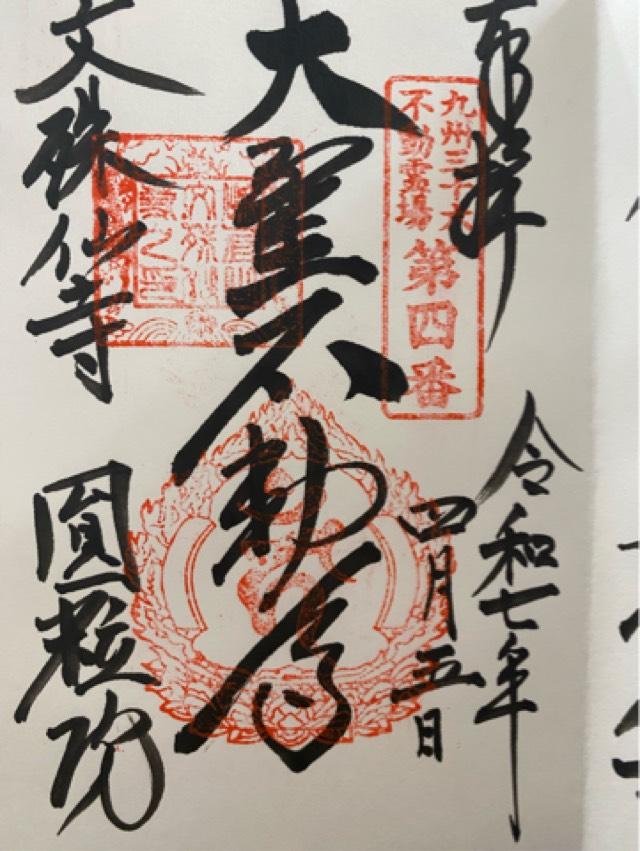 奉拝
九州三十六
不動霊場
第四番
令和七年
四月五日
大聖不動尊
文殊仙寺
圓粒院